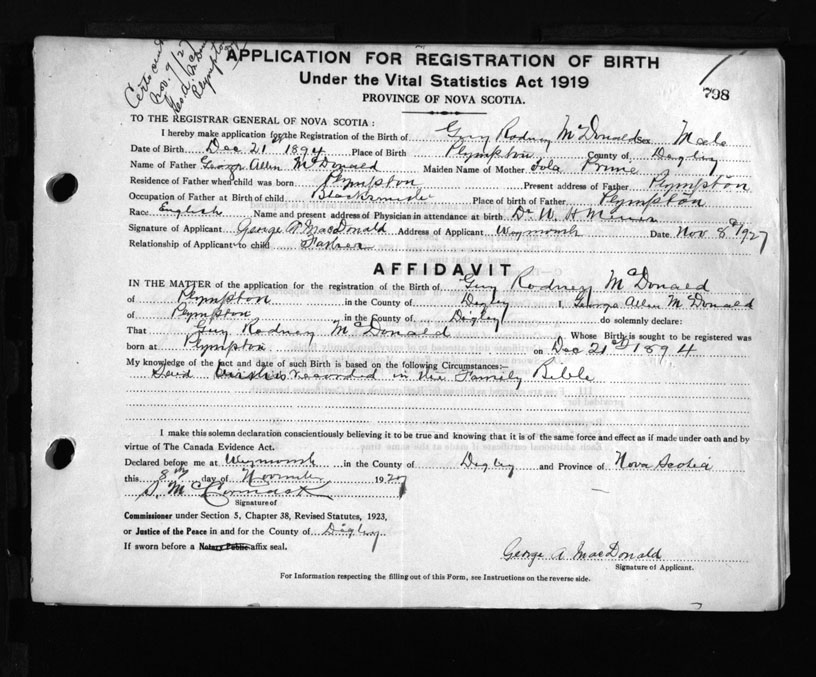 Nov. 9/27
Plympton
APPLICATION FOR REGISTRATION OF BIRTH
Under the Vital Statistics Act 1919
PROVINCE OF NOVA SCOTIA.
798
TO THE REGISTRAR GENERAL OF NOVA SCOTIA:
I hereby make application for the Registration of the Birth of Guy Rodney McDonald Sex Male
Date of Birth Dec 21st 1894 Place of Birth Plympton County of Digby
Name of Father George Allen McDonald Maiden Name of Mother
Residence of Father when child was born Plympton Present address of Father Plympton
Occupation of Father at Birth of child Blacksmith Place of birth of Father Plympton
Race English Name and present address of Physician in attendance at birth Dr W. H
Signature of Applicant George A MacDonald Address of Applicant Weymouth Date Nov 8th 1927
Relationship of Applicant to child Father
AFFIDAVIT
IN THE MATTER of the application for the registration of the Birth of Guy Rodney McDonald
of Plympton in the County of Digby I, George Allen McDonald
of Plympton in the County of Digby do solemnly declare:
That Guy Rodney McDonald Whose Birth is sought to be registered was
born at Plympton on Dec 21st 1894
My knowledge of the fact and date of such Birth is based on the following Circumstances:—
Said recorded in the Family Bible
I make this solemn declaration conscientiously believing it to be true and knowing that it is of the same force and effect as if made under oath and by
virtue of The Canada Evidence Act.
Declared before me at Weymouth in the County of Digby and Province of Nova Scotia
this 8th day of November 1927
S. McCormack
Signature of
Commissioner under Section 5, Chapter 38, Revised Statutes, 1923,
or Justice of the Peace in and for the County of Digby
If sworn before a Notary Public affix seal.
George A MacDonald
Signature of Applicant.
For Information respecting the filling out of this Form, see Instructions on the reverse side.